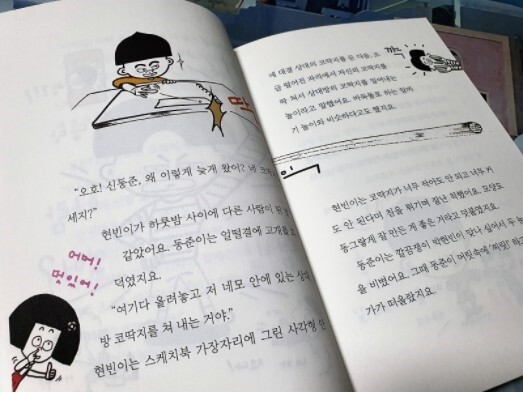 딱
"오호! 신동준, 왜 이렇게 늦게 왔어? 냉
세지?"
현빈이가 하룻밤 사이에 다른 사람이 된
감았어요. 동준이는 얼떨결에 고개를
덕였지요.
어머!
멋있어!
"여기다 올려놓고 저 네모 안에 있는 상대
방 코딱지를 쳐 내는 거야."
현빈이는 스케치북 가장자리에 그린 사각형 안
에 대결 상대의 코딱지를 둔 다음, 조
금 떨어진 자리에서 자신의 코딱지를
탁 쳐서 상대방의 코딱지를 밀어내는
놀이라고 말했어요. 바둑돌로 하는 알까
기 놀이와 비슷하다고도 했지요.
현빈이는 코딱지가 너무 작아도 안 되고 너무 커
도 안 된다며 침을 튀기며 열변
동그랗게 잘 만든 게 좋은 거라고 덧붙였지요.
동준이는 깔끔쟁이 박현빈이 맞나 싶어서 두 눈
을 비볐어요. 그때 동준이 머릿속에
가가 떠올랐지요.